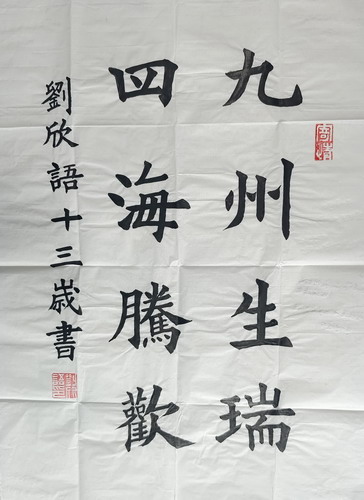 九州生瑞
四海騰歡
劉欣語十三歲書